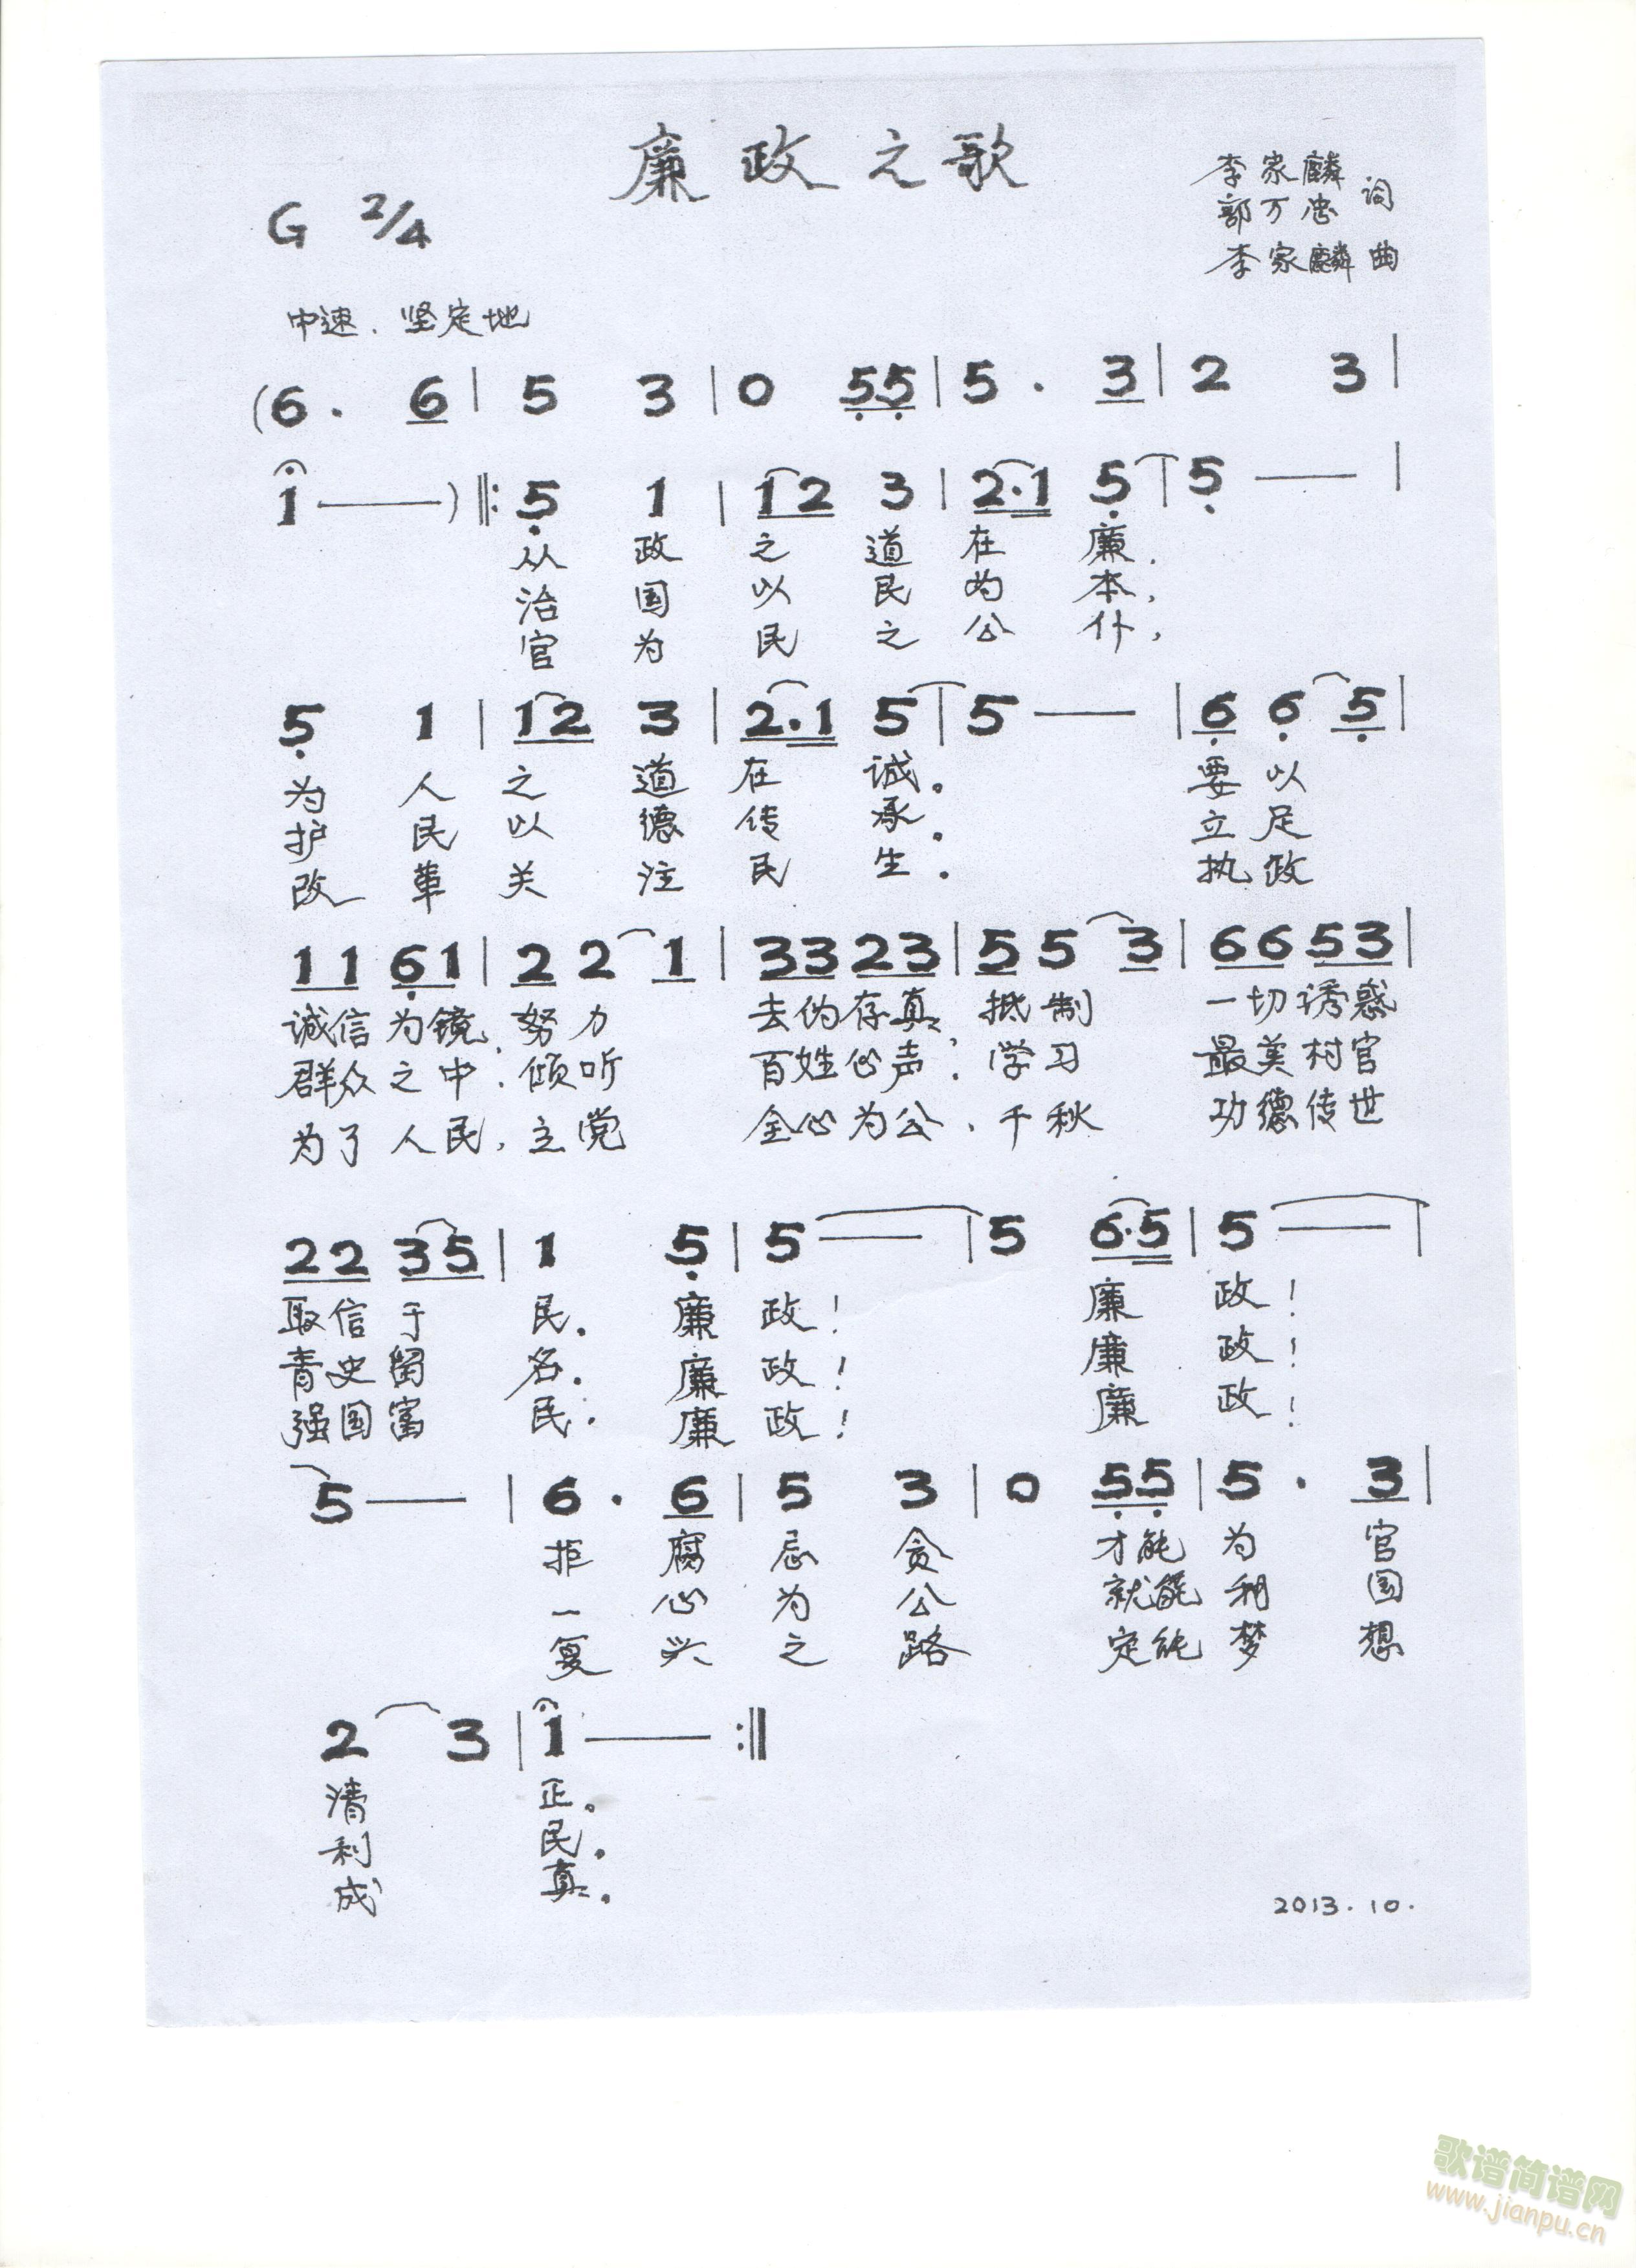 廉政之歌
李家麟
郭万忠 词
李家麟 曲
G 2/4
中速．坚定地
(6. 6 | 5 3 | 0 55 | 5. 3 | 2 3 |
1 — ) ‖: 5 1 | 12 3 | 2.1 5 | 5 — |
从 政 之 道 在 廉．
治 国 以 民 为 本，
官 为 民 之 公 仆，
5 1 | 12 3 | 2.1 5 | 5 — | 6 6 5 |
为 人 之 道 在 诚。 要 以
护 民 以 德 传 承． 立 足
改 革 关 注 民 生． 执 政
11 61 | 2 2 1 | 33 23 | 5 5 3 | 66 53 |
诚信 为镜．努 力 去伪存真．抵 制 一切诱惑
群众 之中．倾 听 百姓心声．学 习 最美村官
为了 人民，立 党 全心为公．千 秋 功德传世
22 35 | 1 5 | 5 — | 5 6.5 | 5 — |
取信 于 民． 廉 政！ 廉 政！
青史 留 名． 廉 政！ 廉 政！
强国 富 民． 廉 政！ 廉 政！
5 — | 6. 6 | 5 3 | 0 55 | 5. 3 |
拒 腐 忌 贪 才能 为 官
一 心 为 公 就能 利 国
复 兴 之 路 定能 梦 想
2 3 | 1 — :‖
清 正。
利 民．
成 真．
2013.10.
歌谱简谱网
www.jianpu.cn